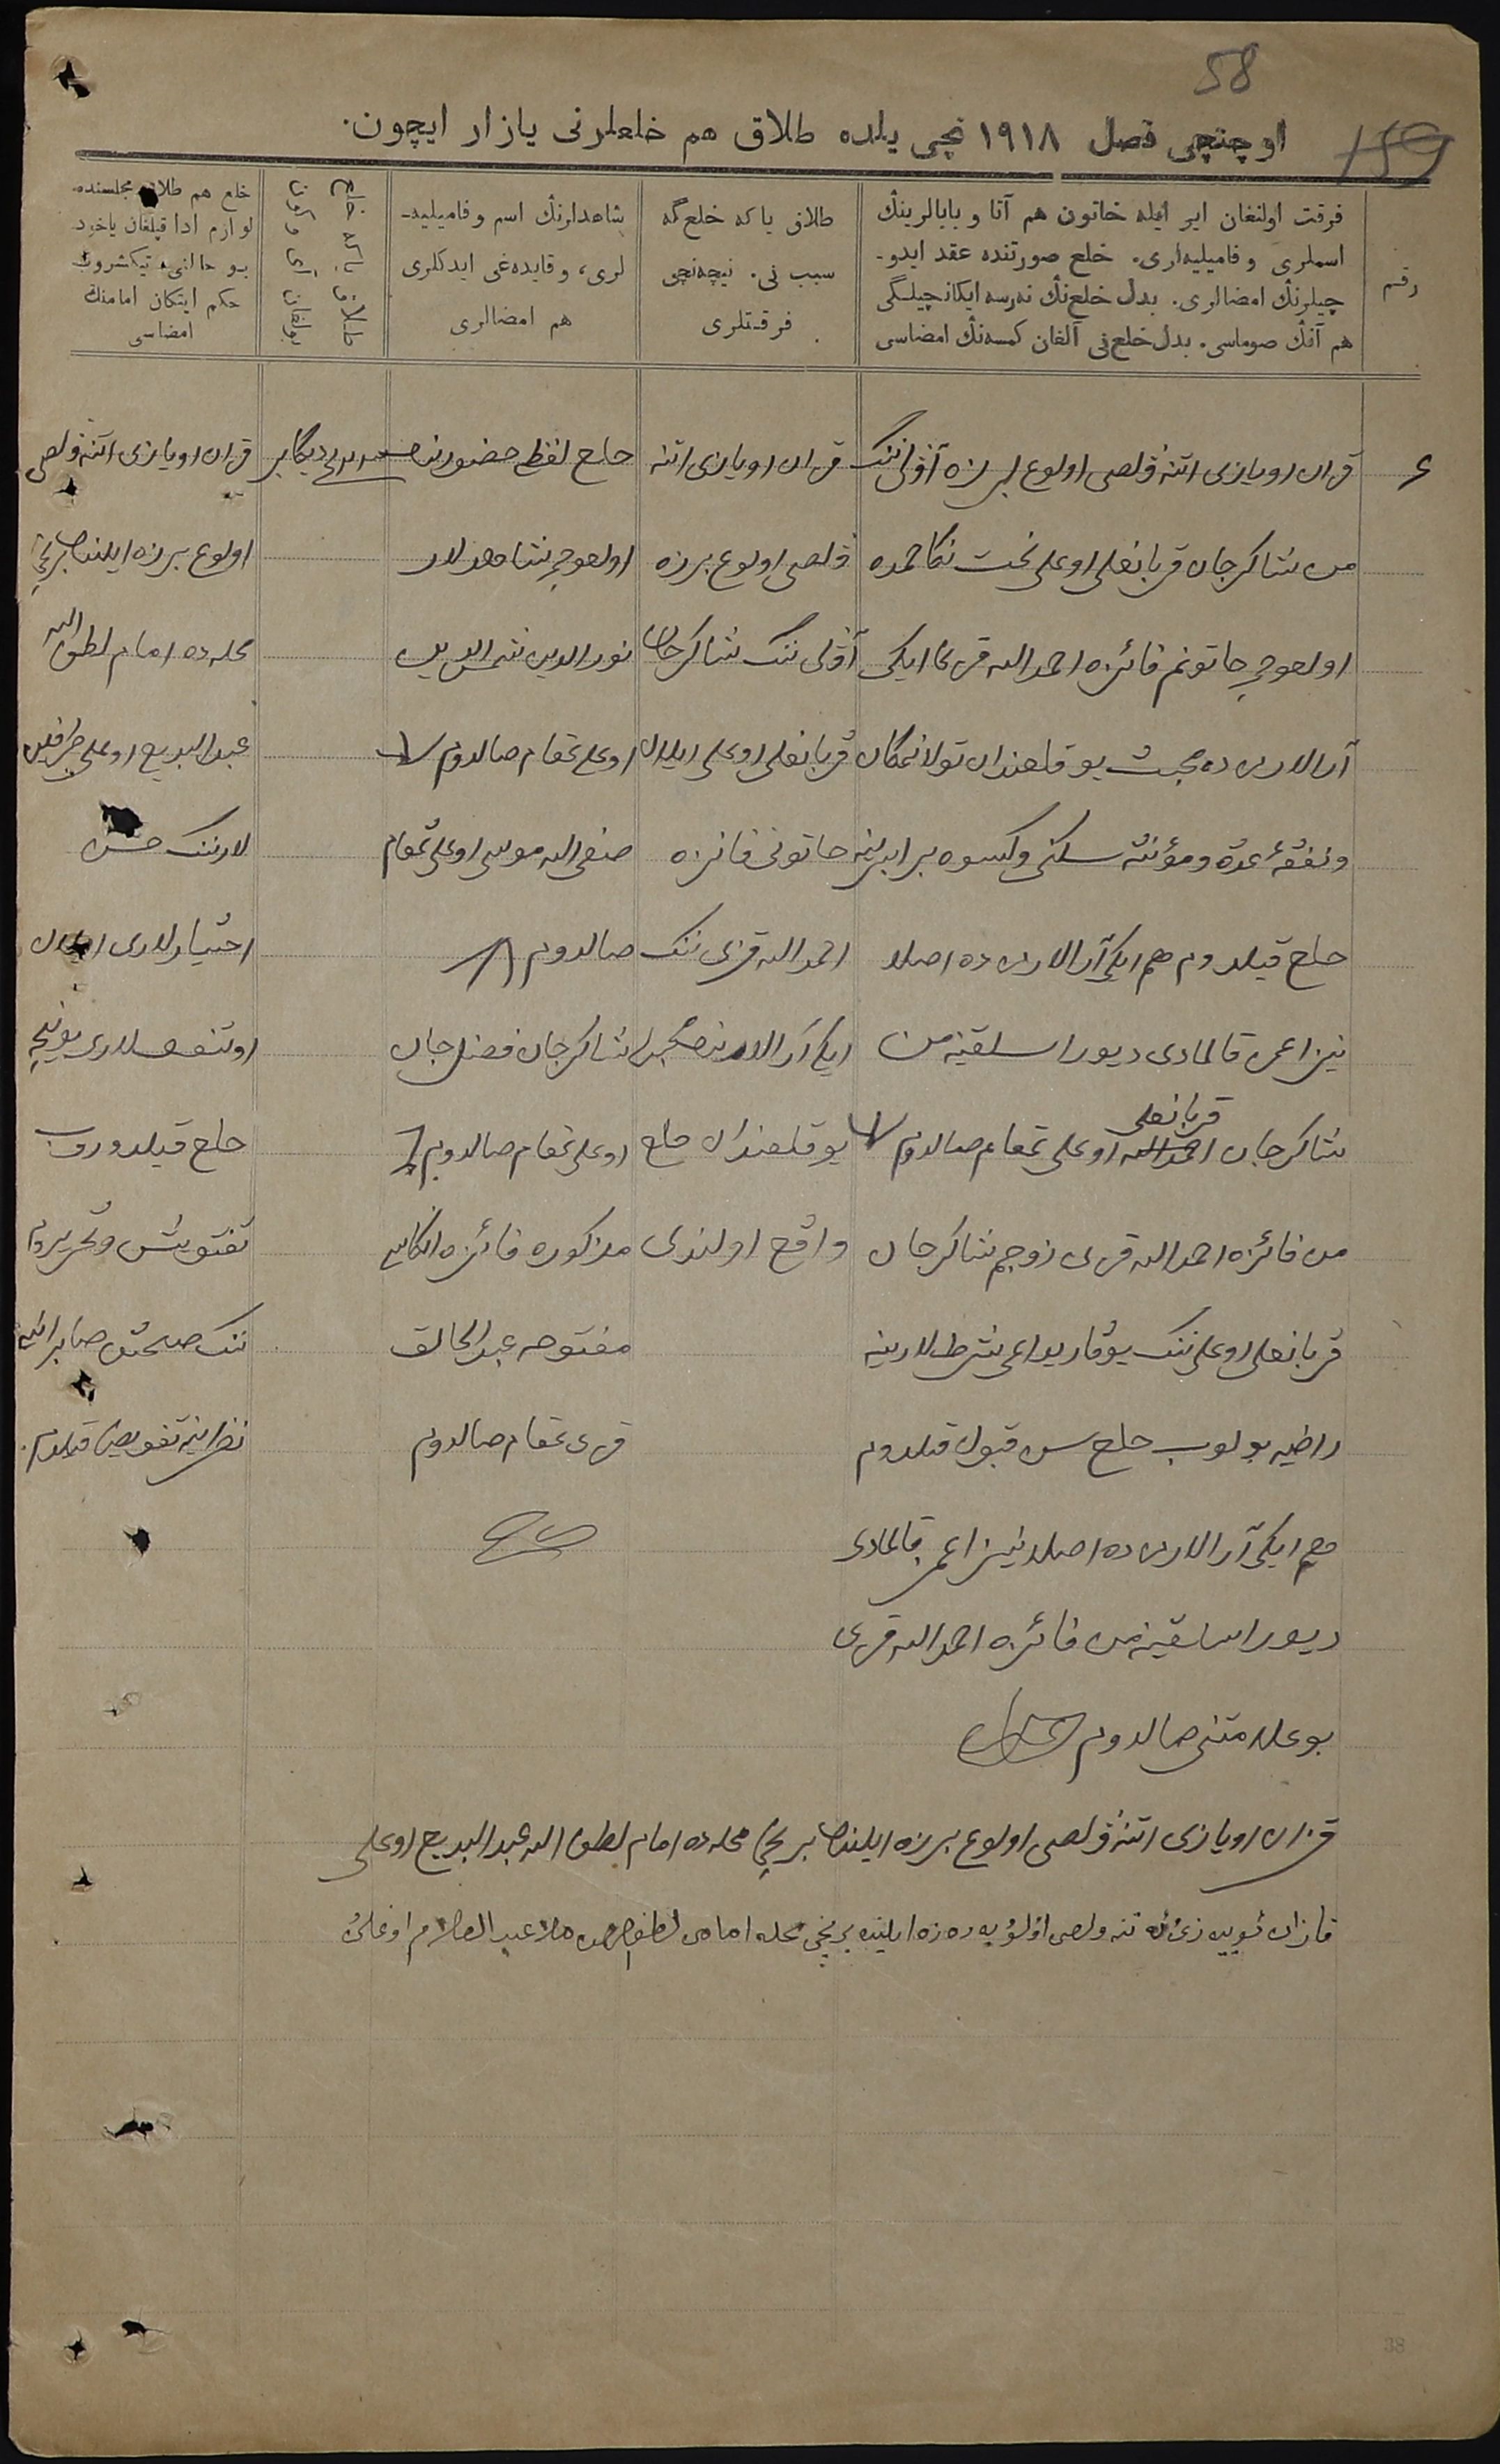 58
159
اوچنچی فصل ۱۹۱۸ نچی یلده طلاق هم خلعلرنی یازار ایچون.
رقم
فرقت اولنغان ایر ایله خاتون هم آتا و بابالرینڭ
اسملری و فامیلیه‌لری. خلع صورتنده عقد ایدو-
چیلرنڭ امضالری. بدل خلع‌نڭ نه‌رسه ایکانچیلگی
هم آنڭ صوماسی. بدل خلع‌نی آلغان کمسه‌نڭ امضاسی
طلاق یا که خلع گه
سبب نی. نیچه‌نچی
فرقتلری
شاهدلرنڭ اسم و فامیلیه-
لری، و قایده‌غی ایدکلری
هم امضالری
طلاق یا که خلع
بولغان آی و کون
خلع هم طلاق مجلسنده
لوازم ادا قیلغان یاخود
بو حالنی تیکشروب
حکم ایتکان امامنڭ
امضاسی
قزان اویازی اتنه ولصی اولوغ برزه آولی ننگ
من شاکرجان قربانعلی اوغلی تحت نکاحمده
اولغوچی خاتونم فائزه احمدالله قزی ایکی
آرالارمزده محبت یوقلغندان تولانمگان
ونفقهٔ عدة ومؤنتۀ سکنی وکسوه برابرینه
خلع قیلدوم هم ایکی آرالارمزده اصلا
نیزاعمز قالمادی دیو راسلقینه من
شاکرجان قربانعلی اوغلی تمغام صالدوم
من فائزه احمدالله قزی زوجم شاکرجان
قربانعلی اوغلی ننگ یوقاریداغی شرطلارینه
راضیه بولوب خلع سن قبول قیلدوم
هم ایکی آرالارمزده اصلا نیزاعمز قالمادی
دیو راسلقینه من فائزه احمدالله قزی
بو علامتنی صالدوم
قزان اویازی اتنه
ولصی اولوغ برزه
آولی ننگ شاکرجان
قربانعلی اوغلی ایلان
خاتونی فائزه
احمدالله قزی ننگ
ایکی آرالارنده محبت
یوقلغندان خلع
واقع اولندی
خلع لفظی حضورنده
اولغوچی شاهدلار
نورالدین شمس الدین
اوغلی تمغام صالدوم
صنعی الله موسی اوغلی تمغام
صالدوم
شاکرجان فضل جان
اوغلی تمغام صالدوم
مذکوره فائزه انکاسی
مفتوحه عبدالخالق
قزی تمغام صالدوم
دیکابر
قزان اویازی اتنه ولصی
اولوغ برزه ایلنده برنچی
محله ده امام لطف الله
عبدالبدیع اوغلی طرفین
لارننگ حسن
اختیارلاری ایلان
اوتنچلاری بوینچه
خلع قیلدوروب
تفتویش وتحریرم
ننگ صحتن صابرانه
نظرانینه تفویض قیلدم.
قزان اویازی اتنه ولصی اولوغ برزه ایلنده برنچی محله ده امام لطف الله عبدالبدیع اوغلی
قازان ئوییه زی ئه تنه ولصی اولوغ به ره زه ایلینده برنچی محله امامی